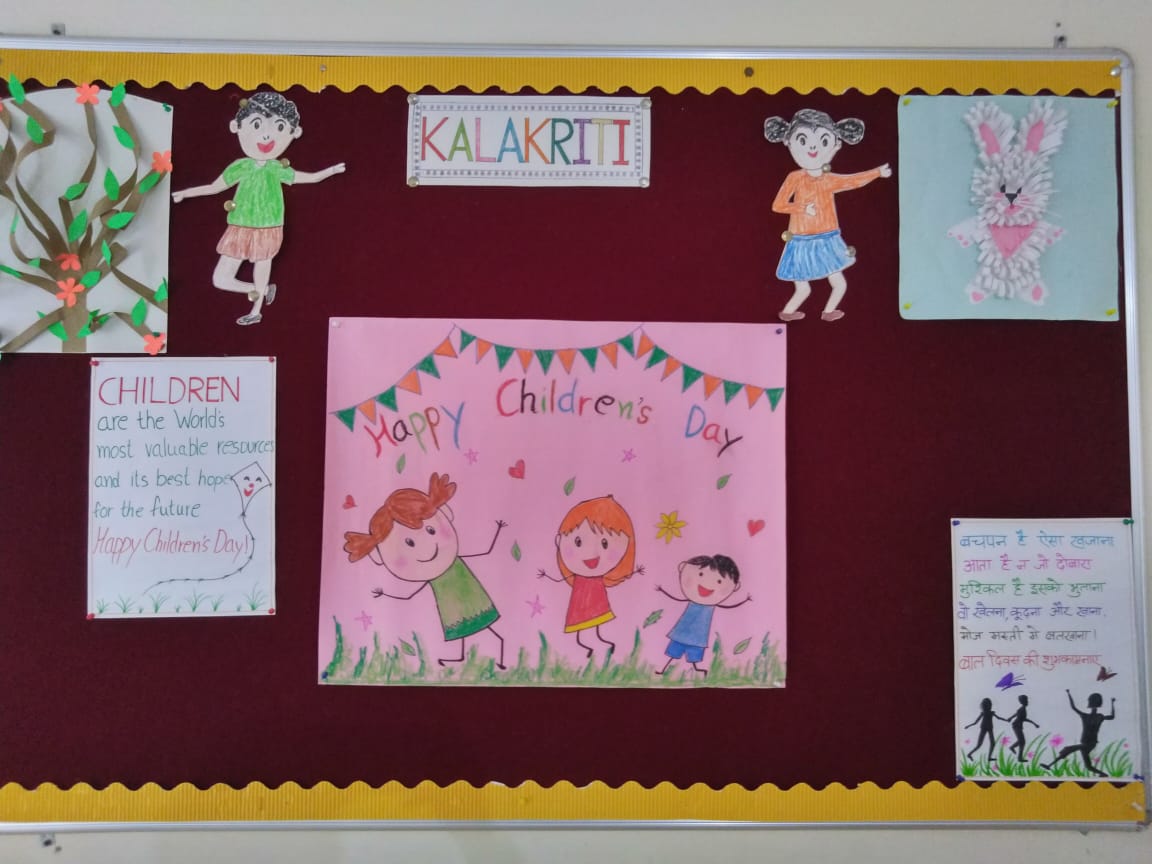 KALAKRITI
CHILDREN
are the World's
most valuable resources
and its best hope
for the future
Happy Children's Day!
Happy Children's Day
बचपन है ऐसा खजाना
आता है न जो दोबारा
मुश्किल है इसको भुलाना
वो खेलना, कूदना और खाना,
मौज मस्ती में
बाल दिवस की शुभकामनाए